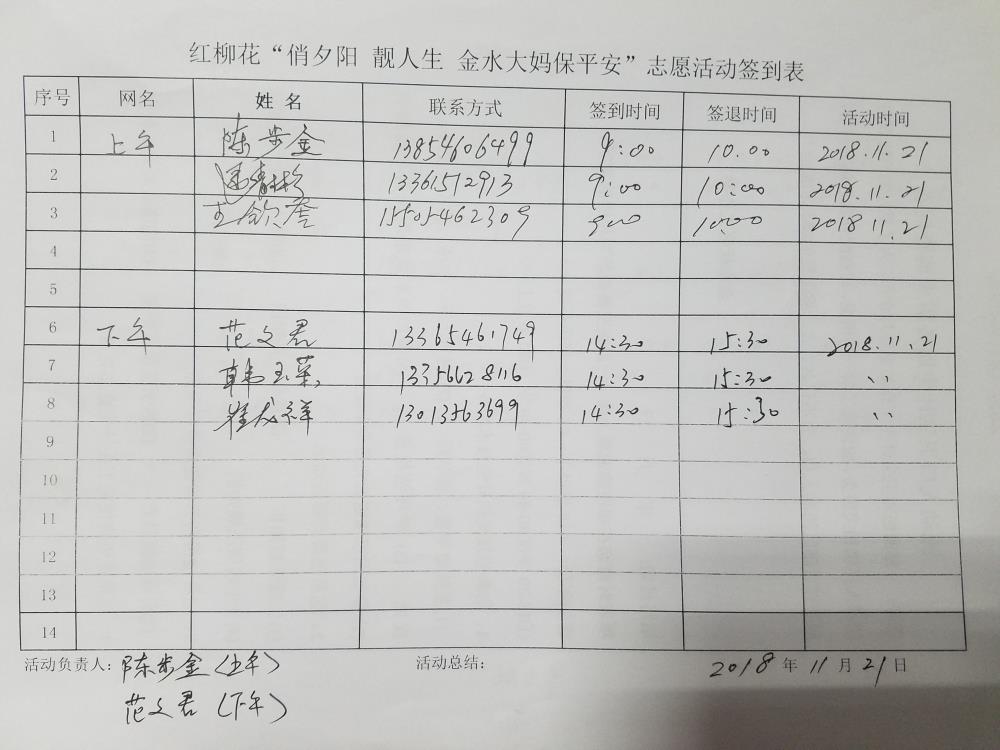 红柳花“俏夕阳 靓人生 金水大妈保平安”志愿活动签到表
序号 网名 姓名 联系方式 签到时间 签退时间 活动时间
1 上午 陈步金 13854606499 9:00 10.00 2018.11.21
2 13361512913 9:00 10:00 2018.11.21
3 15505462309 900 10:00 2018 11.21
4
5
6 下午 范文君 13365461749 14:30 15:30 2018.11.21
7 韩玉荣 13356628116 14:30 15:30 、、
8 崔龙祥 13013563699 14:30 15:30 、、
9
10
11
12
13
14
活动负责人: 陈步金(上午) 活动总结: 2018年11月21日
范文君(下午)